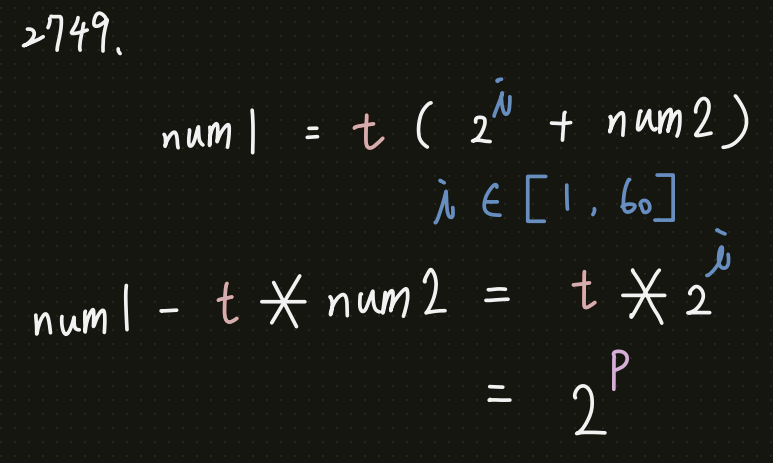 2749.
num1 = t ( 2^i + num2 )
i ∈ [ 1 , 60 ]
num1 - t * num2 = t * 2^i
= 2^p